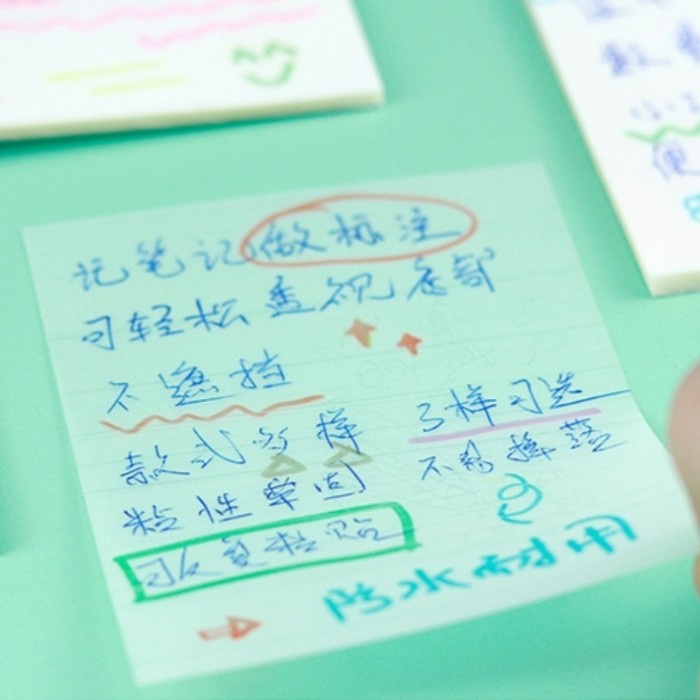 记笔记做标注
可轻松透视底部
不遮挡
款式多样
多样可选
粘性牢固
不易掉落
可反复粘贴
防水耐用